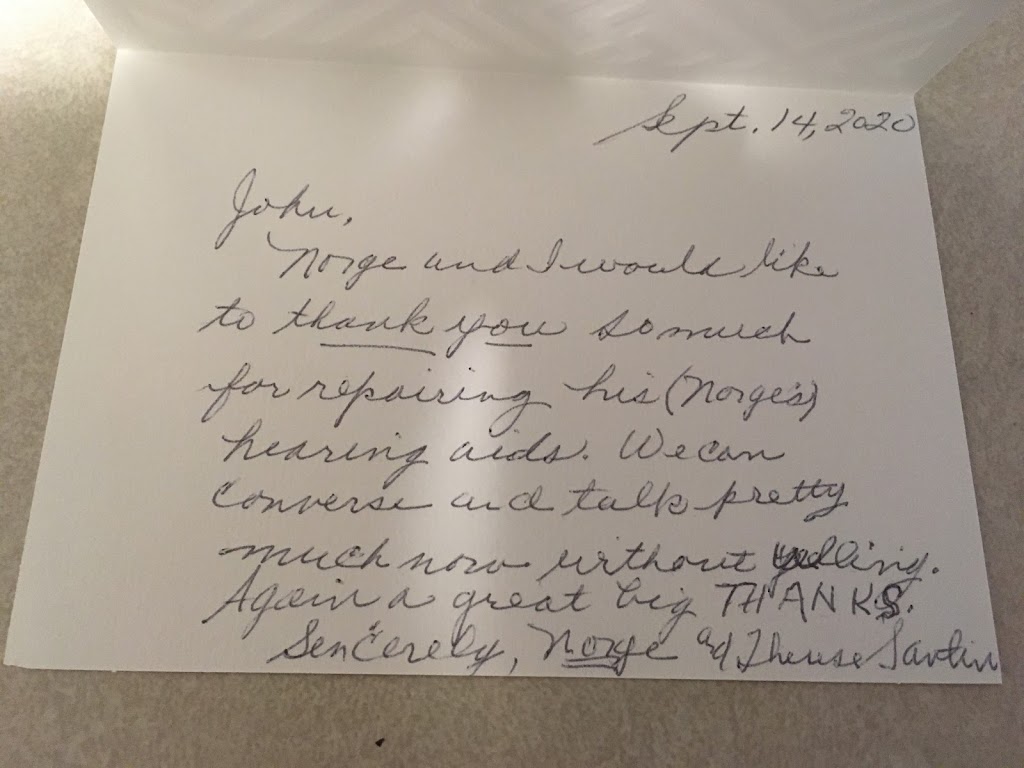 Sept. 14, 2020
John,
Norge and I would like
to thank you so much
for repairing his (Norge's)
hearing aids. We can
converse and talk pretty
much now without yelling.
Again a great big THANKS.
Sencerely, Norge and Therese